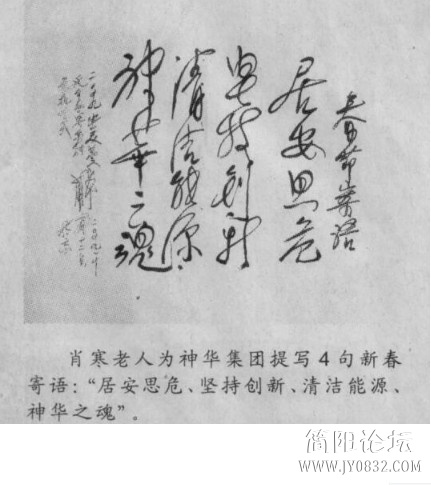 春节寄语
居安思危
坚持创新
清洁能源
神华之魂
肖寒老人为神华集团提写4句新春
寄语：“居安思危、坚持创新、清洁能源、
神华之魂”。
简阳论坛
WWW.JY0832.COM